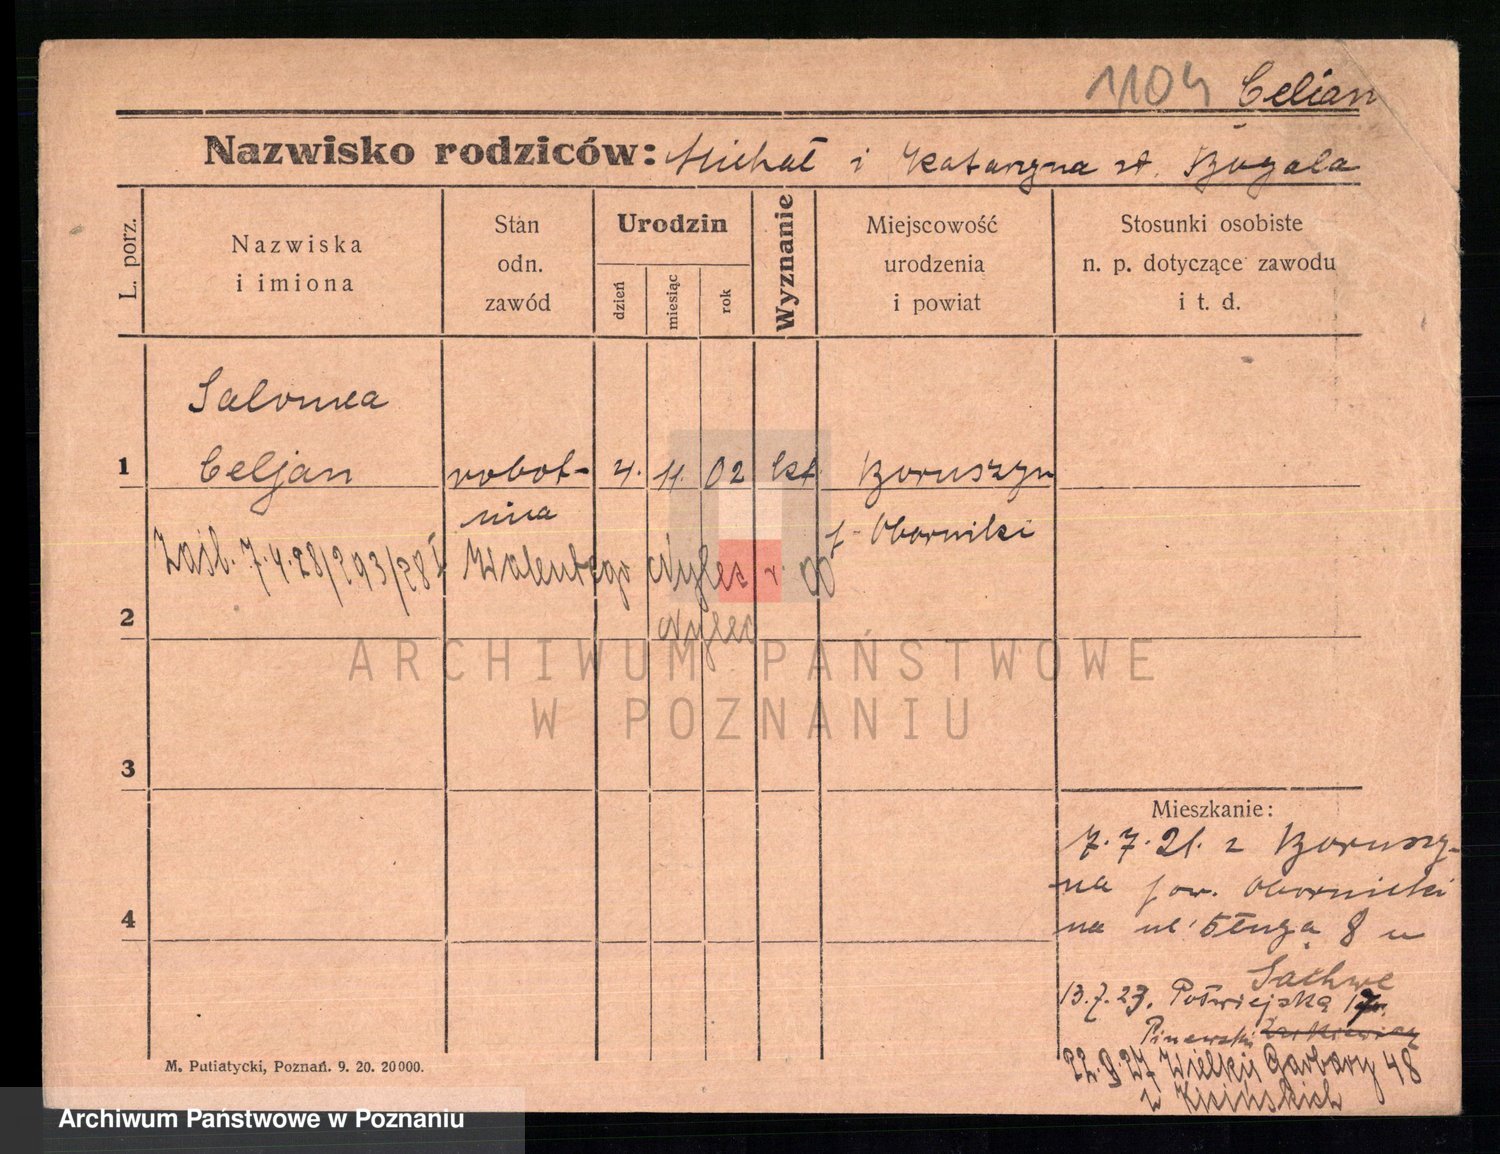 1104 Celian
Nazwisko rodziców: Michał i Katarzyna
L. porz.
Nazwiska
i imiona
Stan
odn.
zawód
Urodzin
dzień
miesiąc
rok
Wyznanie
Miejscowość
urodzenia
i powiat
Stosunki osobiste
n. p. dotyczące zawodu
i t. d.
Salomea
1 Celjan robot- 4. 11. 02 kt Boruszyn
nica p. Oborniki
Zaśl. 7.4.28/293/28 Walentego
2
3
Mieszkanie:
7.7.21. z Boruszy-
na pow. Oborniki
4
na ul. Długą 8 u
Sachwe
13.7.23. Półwiejską 17
22.9.27 Wielkie Garbary 48
M. Putiatycki, Poznań. 9. 20. 20000.
ARCHIWUM PAŃSTWOWE
W POZNANIU
Archiwum Państwowe w Poznaniu